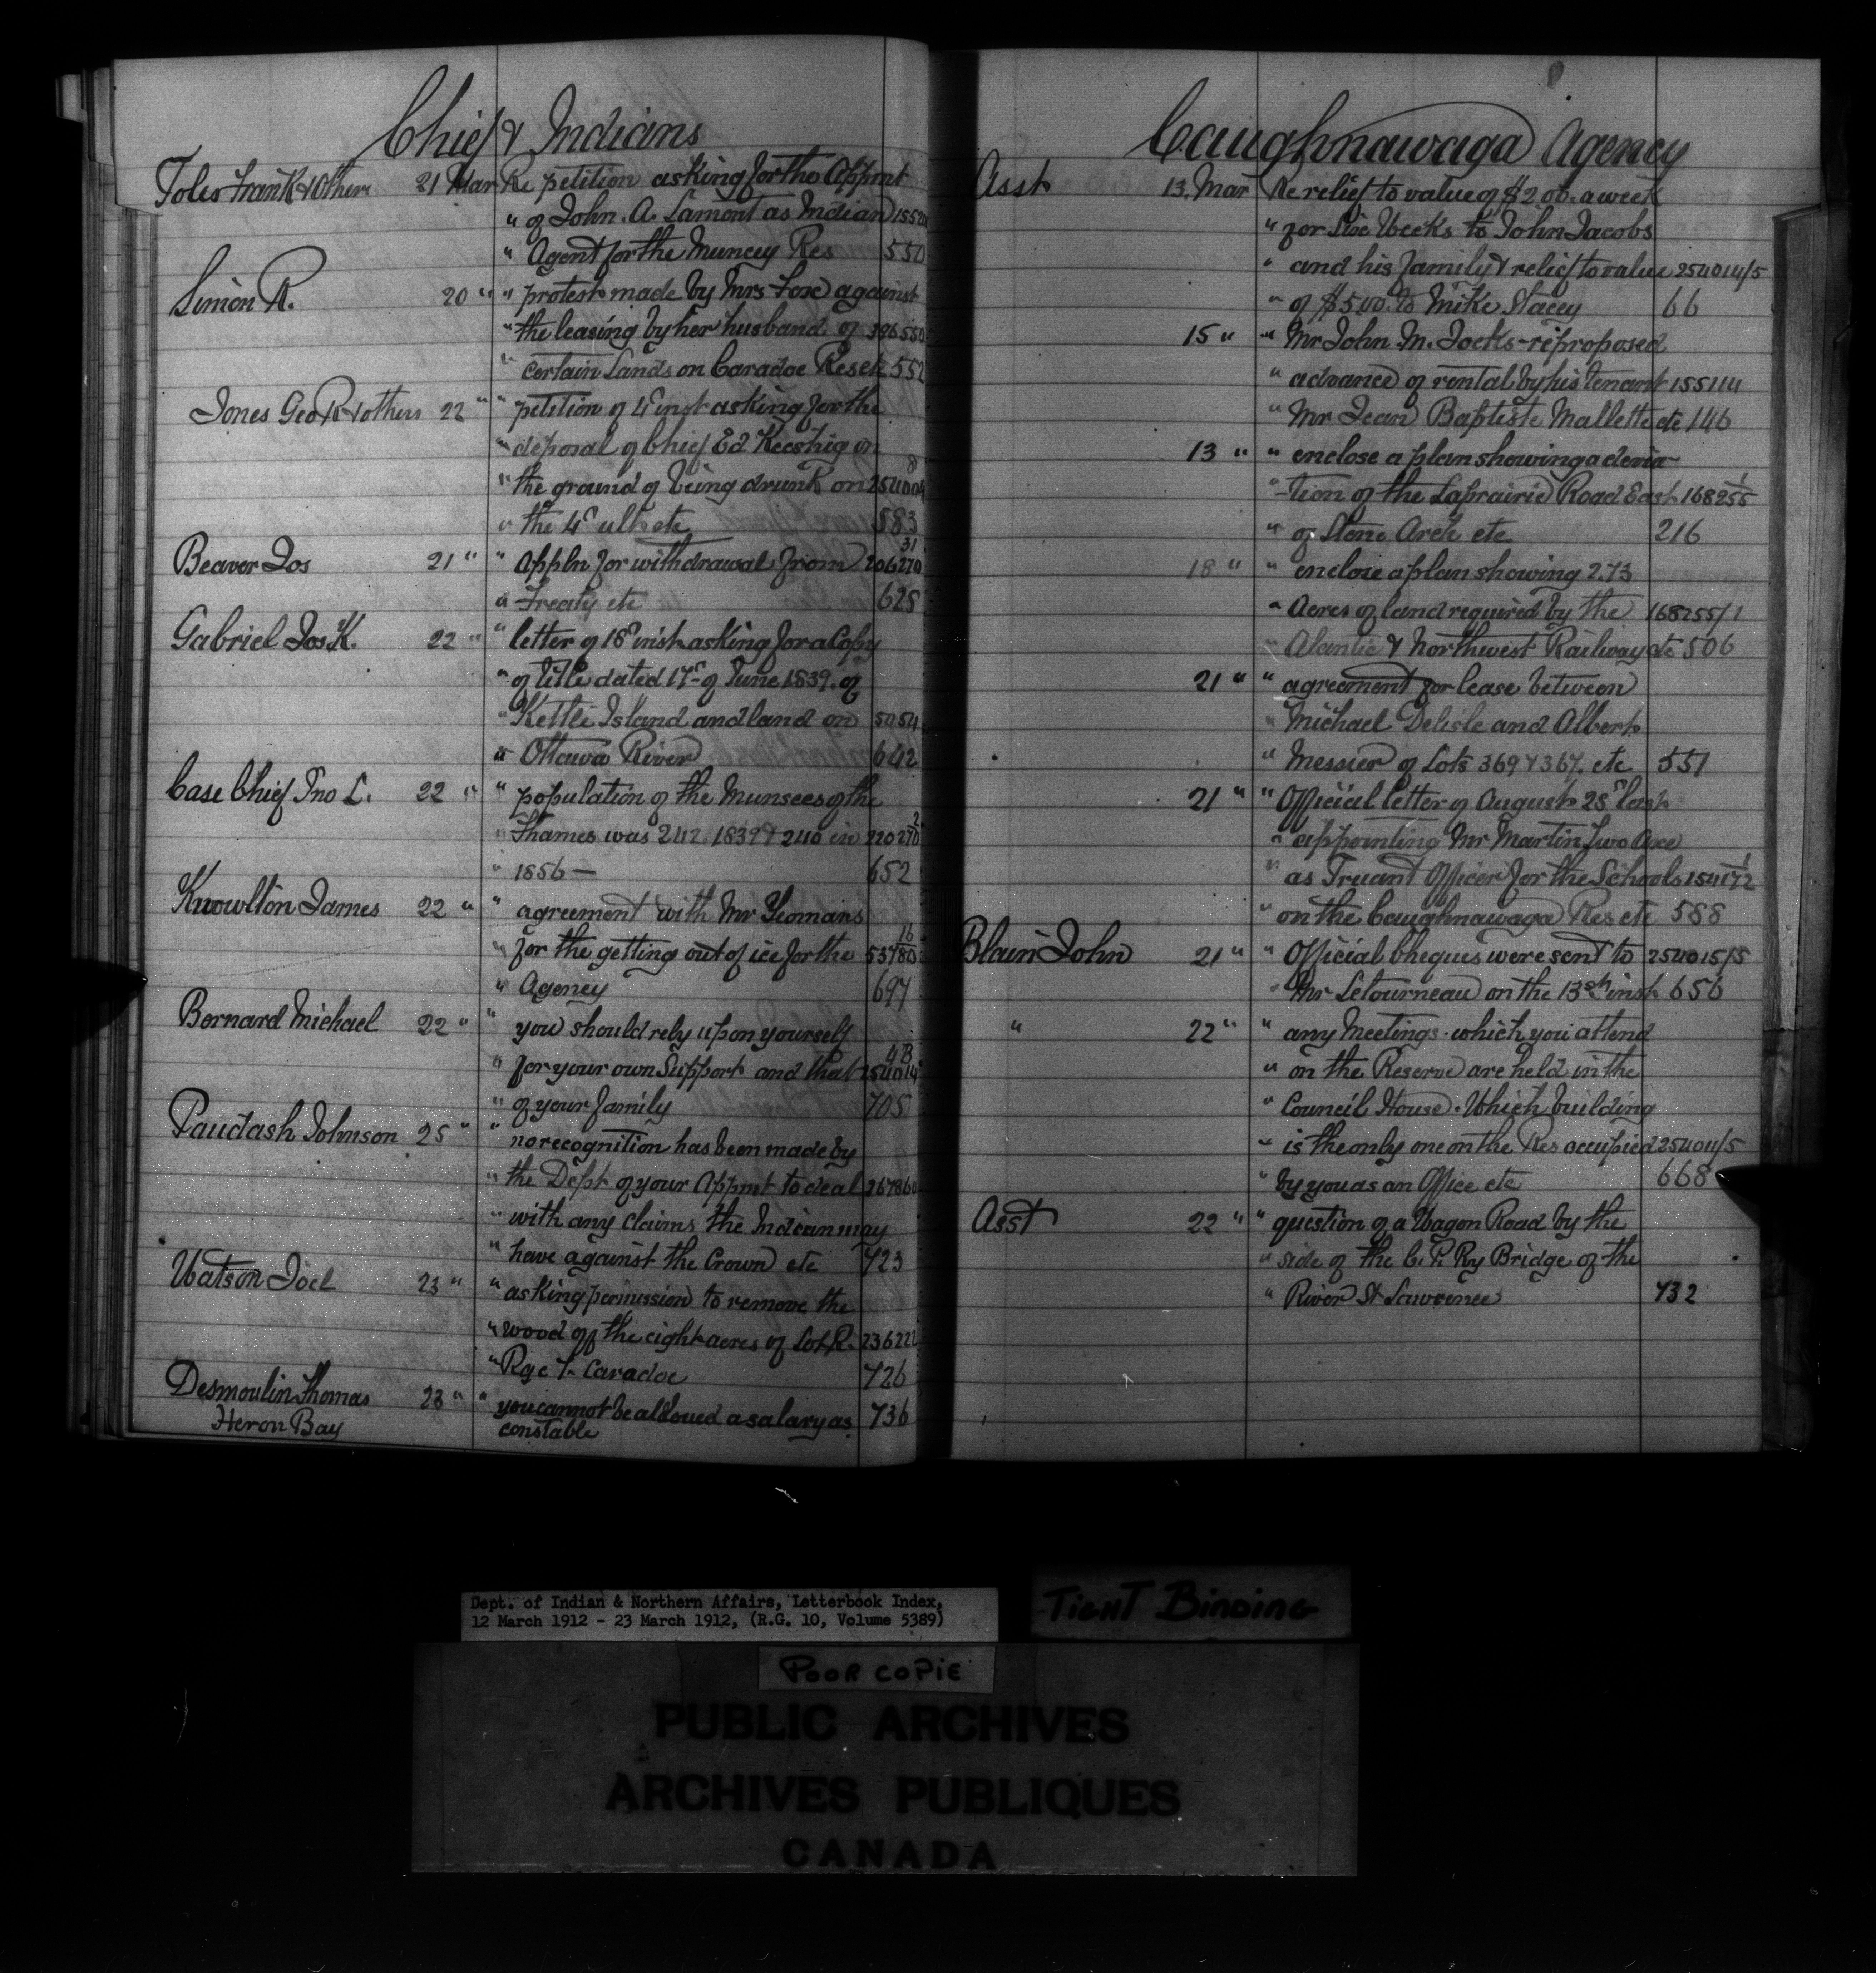 Chief & Indians
Toles Frank & Others 21 Mar Re petition asking for the Appmt
" of John. A. Lamont as Indian 155
" Agent for the Muncey Res 550
Simon R. 20 " " protest made by Mrs Fox against
" the leasing by her husband of 396550
" certain Lands on Caradoc Res etc 552
Jones Geo R & others 22 " " petition of 4th inst asking for the
" deposal of Chief Ed Keeshig on
" the ground of being drunk on 254004 8
" the 4th ult etc 583
Beaver Jos 21 " " Appln for withdrawal from 206270 31
" Treaty etc 625
Gabriel Jos. K. 22 " " letter of 18th inst asking for a Copy
" of title dated 17th of June 1839. of
" Kettle Island and land on 5054
" Ottawa River 642
Case Chief Jno L. 22 " " population of the Munsees of the
" Thames was 242. 1839 & 240 in 220270 2
" 1856 — 652
Knowlton James 22 " " agreement with Mr Yeomans
" for the getting out of ice for the 53780 16
" Agency 697
Bernard Michael 22 " " you should rely upon yourself
" for your own Support and that 254014 4B
" of your family 705
Paudash Johnson 25 " " no recognition has been made by
" the Dept of your Appmt to deal 26786
" with any claims the Indian may
" have against the Crown etc 723
Watson Joel 23 " " asking permission to remove the
" wood off the eight acres of Lot R. 236222
" Rge 1. Caradoc 726
Desmoulin Thomas 23 " " you cannot be allowed a salary as 736
Heron Bay constable
Caughnawaga Agency
Asst 13. Mar Re relief to value of $2.00. a week
" for Six Weeks to John Jacobs
" and his family & relief to value 254014/5
" of $5.00. to Mike Stacey 66
15 " " Mr John M. Jocks - re proposed
" advance of rental by his tenant 155114
" Mr Jean Baptiste Mallette etc 146
13 " " enclose a plan showing a devia-
" -tion of the Laprairie Road East 168255 1
" of Stone Arch etc 216
18 " " enclose a plan showing 2.73
" Acres of land required by the 168255/1
" Alantic & Northwest Railway etc 506
21 " " agreement for lease between
" Michael Delisle and Albert
" Messier of Lots 369 & 367. etc 551
21 " " Official letter of August 25th last
" appointing Mr Martin Two Axe
" as Truant Officer for the Schools 154172 1
" on the Caughnawaga Res etc 588
Blain John 21 " " Official Cheques were sent to 254015/5
" Mr Letourneau on the 13th inst 656
" 22 " " any Meetings. which you attend
" on the Reserve are held in the
" Council House. Which building
" is the only one on the Res occupied 25404/5
" by you as an Office etc 668
Asst 22 " " question of a Wagon Road by the
" side of the C. P. Ry Bridge of the
" River St Lawrence 732
Dept. of Indian & Northern Affairs, Letterbook Index,
12 March 1912 - 23 March 1912, (R.G. 10, Volume 5389)
TIGHT BINDING
POOR COPIE
PUBLIC ARCHIVES
ARCHIVES PUBLIQUES
CANADA